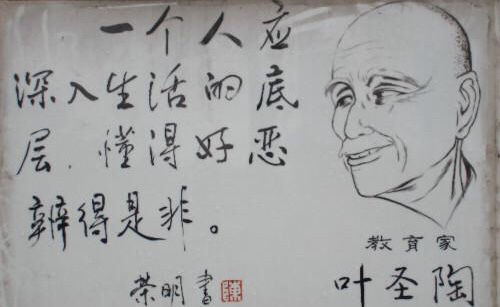 一个人应
深入生活的底
层，懂得好恶
辨得是非。
荣明書
教育家
叶圣陶